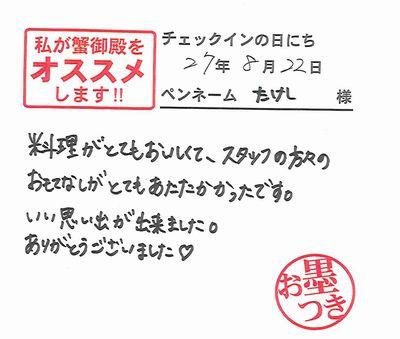 私が蟹御殿を
オススメ
します!!
チェックインの日にち
27年 8月 22日
ペンネーム たけし 様
料理がとてもおいしくて、スタッフの方々の
おもてなしがとてもあたたかかったです。
いい思い出が出来ました。
ありがとうございました♡
お墨つき